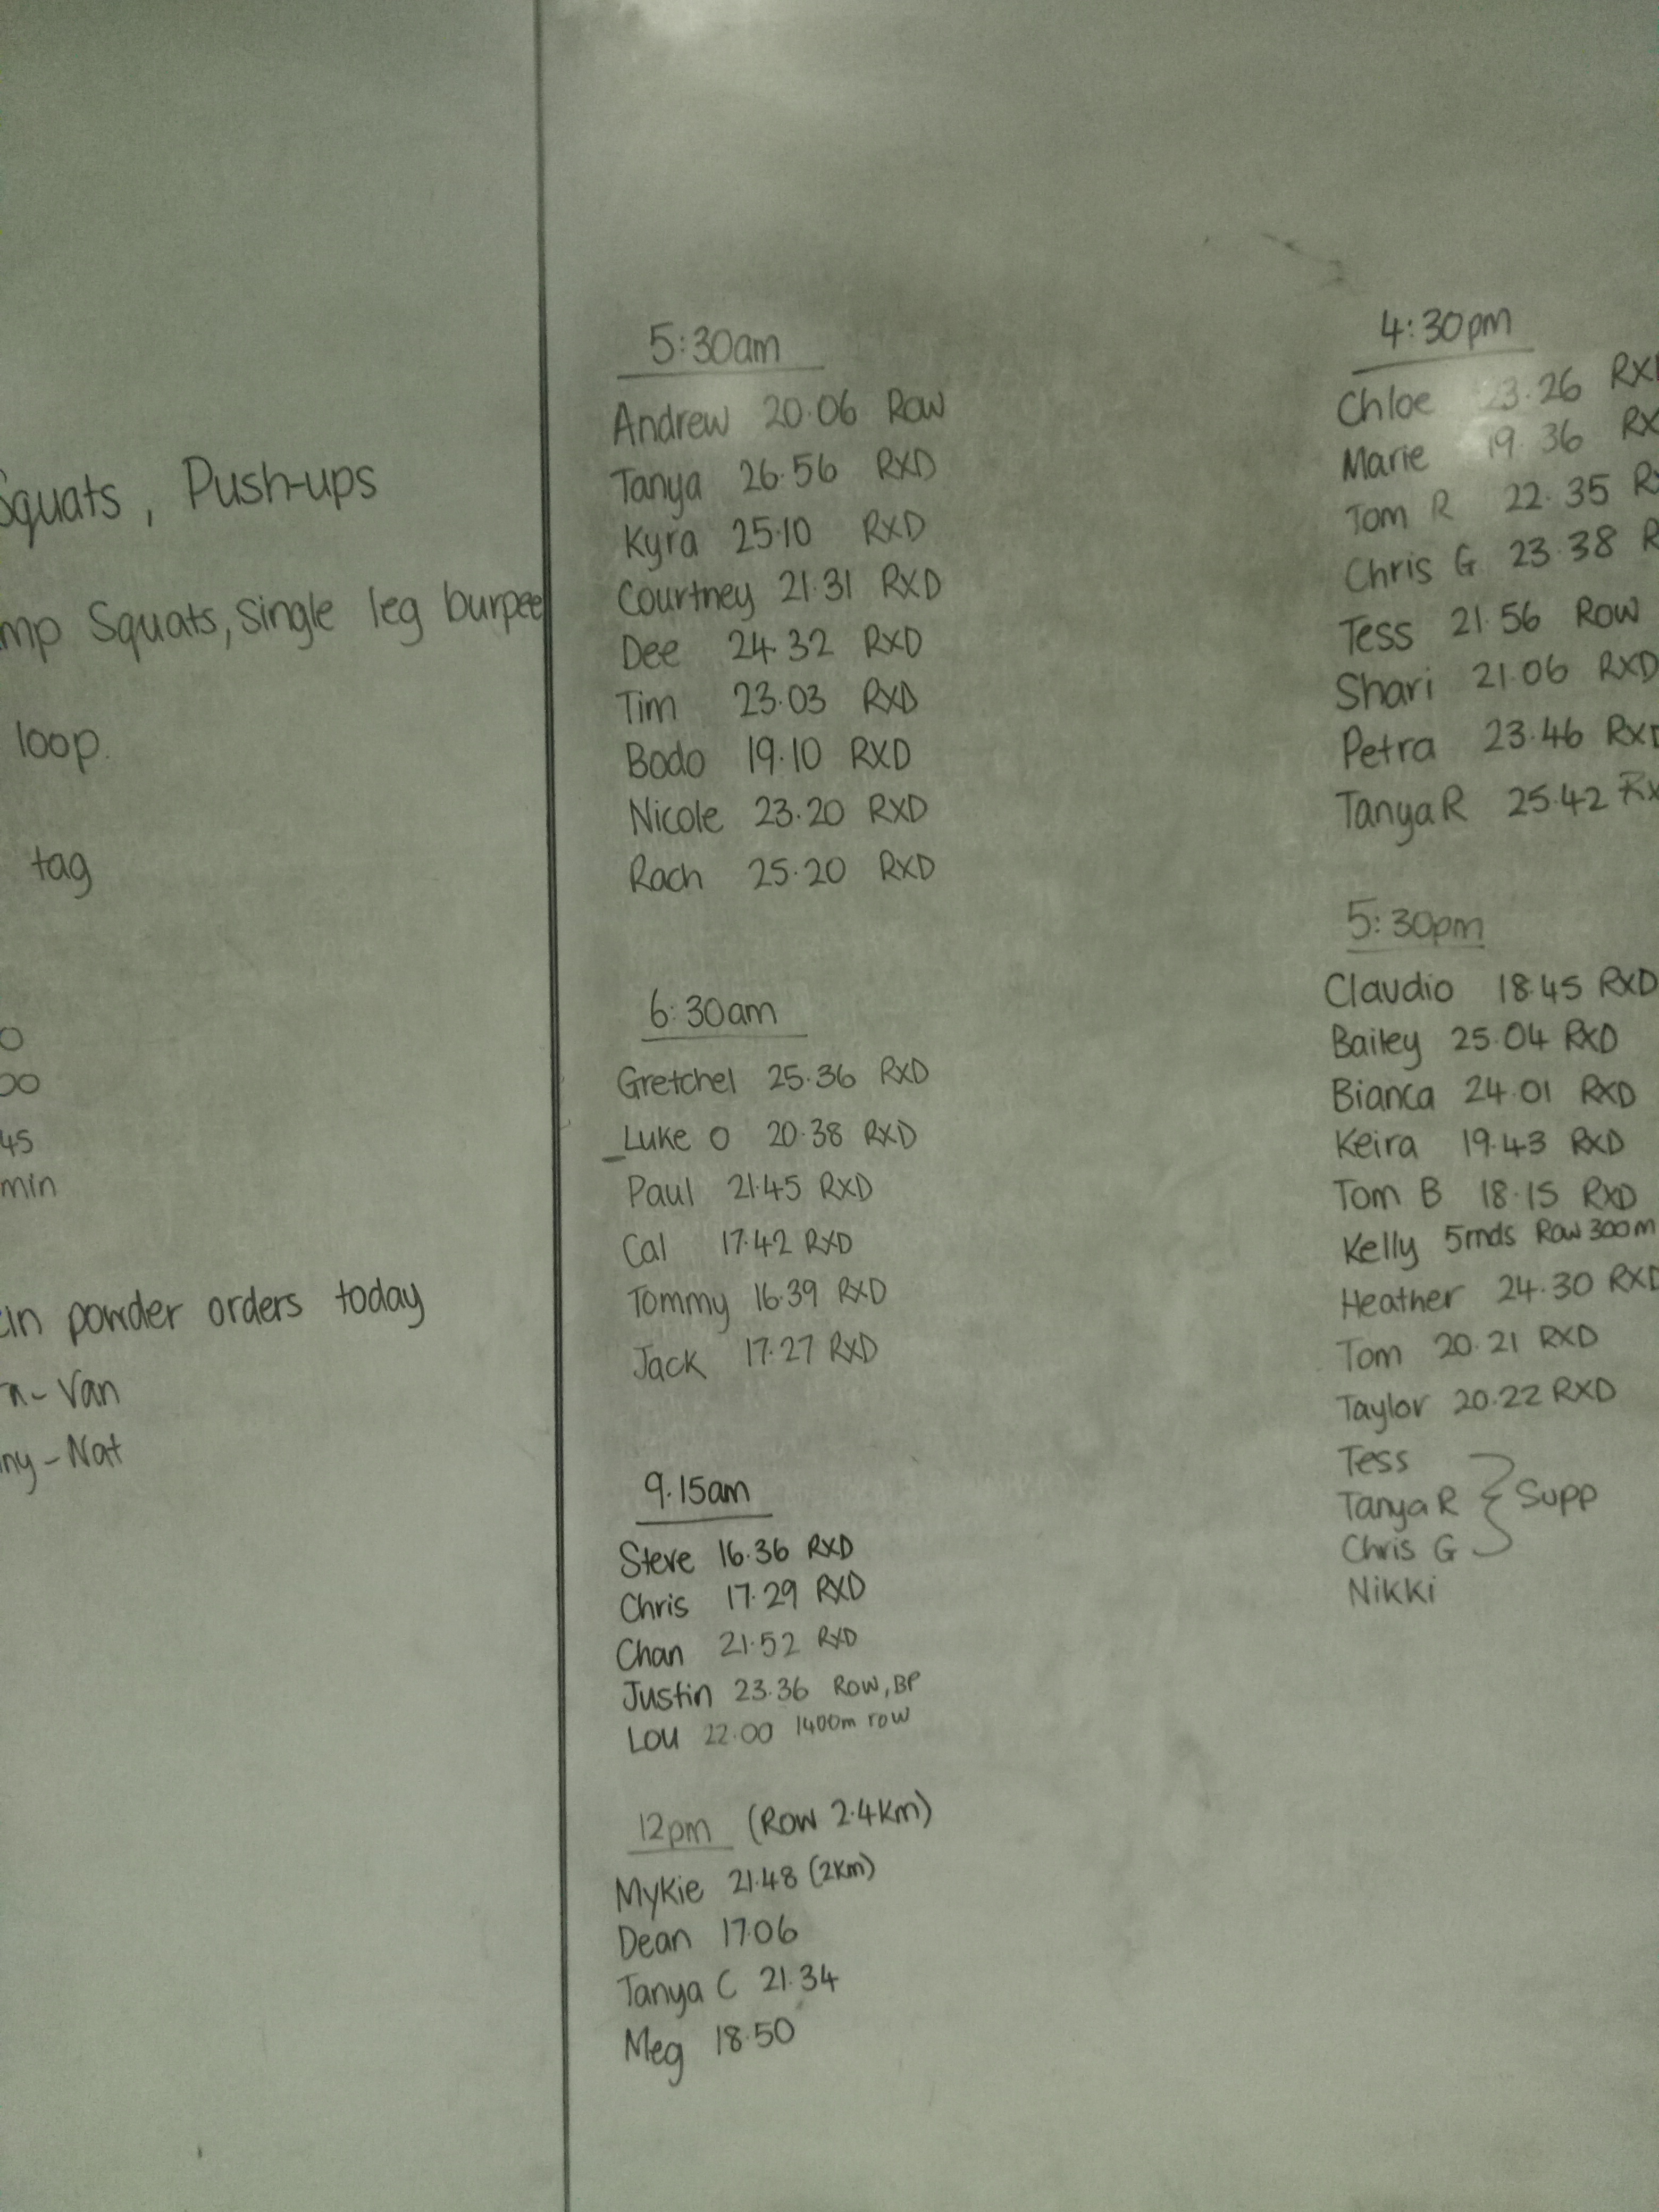 Squats, Push-ups
Squats, Single leg burpee
loop.
tag
45
min
powder orders today
- Van
- Nat
5:30am
Andrew 20.06 Row
Tanya 26.56 RXD
Kyra 25.10 RXD
Courtney 21.31 RXD
Dee 24.32 RXD
Tim 23.03 RXD
Bodo 19.10 RXD
Nicole 23.20 RXD
Rach 25.20 RXD
6:30am
Gretchel 25.36 RXD
Luke O 20.38 RXD
Paul 21.45 RXD
Cal 17.42 RXD
Tommy 16.39 RXD
Jack 17.27 RXD
9.15am
Steve 16.36 RXD
Chris 17.29 RXD
Chan 21.52 RXD
Justin 23.36 Row, BP
Lou 22.00 1400m row
12pm (Row 2.4km)
Mykie 21.48 (2km)
Dean 17.06
Tanya C 21.34
Meg 18.50
4:30pm
Chloe 23.26 RXD
Marie 19.36 RX
Tom R 22.35 R
Chris G 23.38 R
Tess 21.56 Row
Shari 21.06 RXD
Petra 23.46 RXD
Tanya R 25.42 RX
5:30pm
Claudio 18.45 RXD
Bailey 25.04 RXD
Bianca 24.01 RXD
Keira 19.43 RXD
Tom B 18.15 RXD
Kelly 5rnds Row 300m
Heather 24.30 RXD
Tom 20.21 RXD
Taylor 20.22 RXD
Tess
Tanya R } Supp
Chris G
Nikki